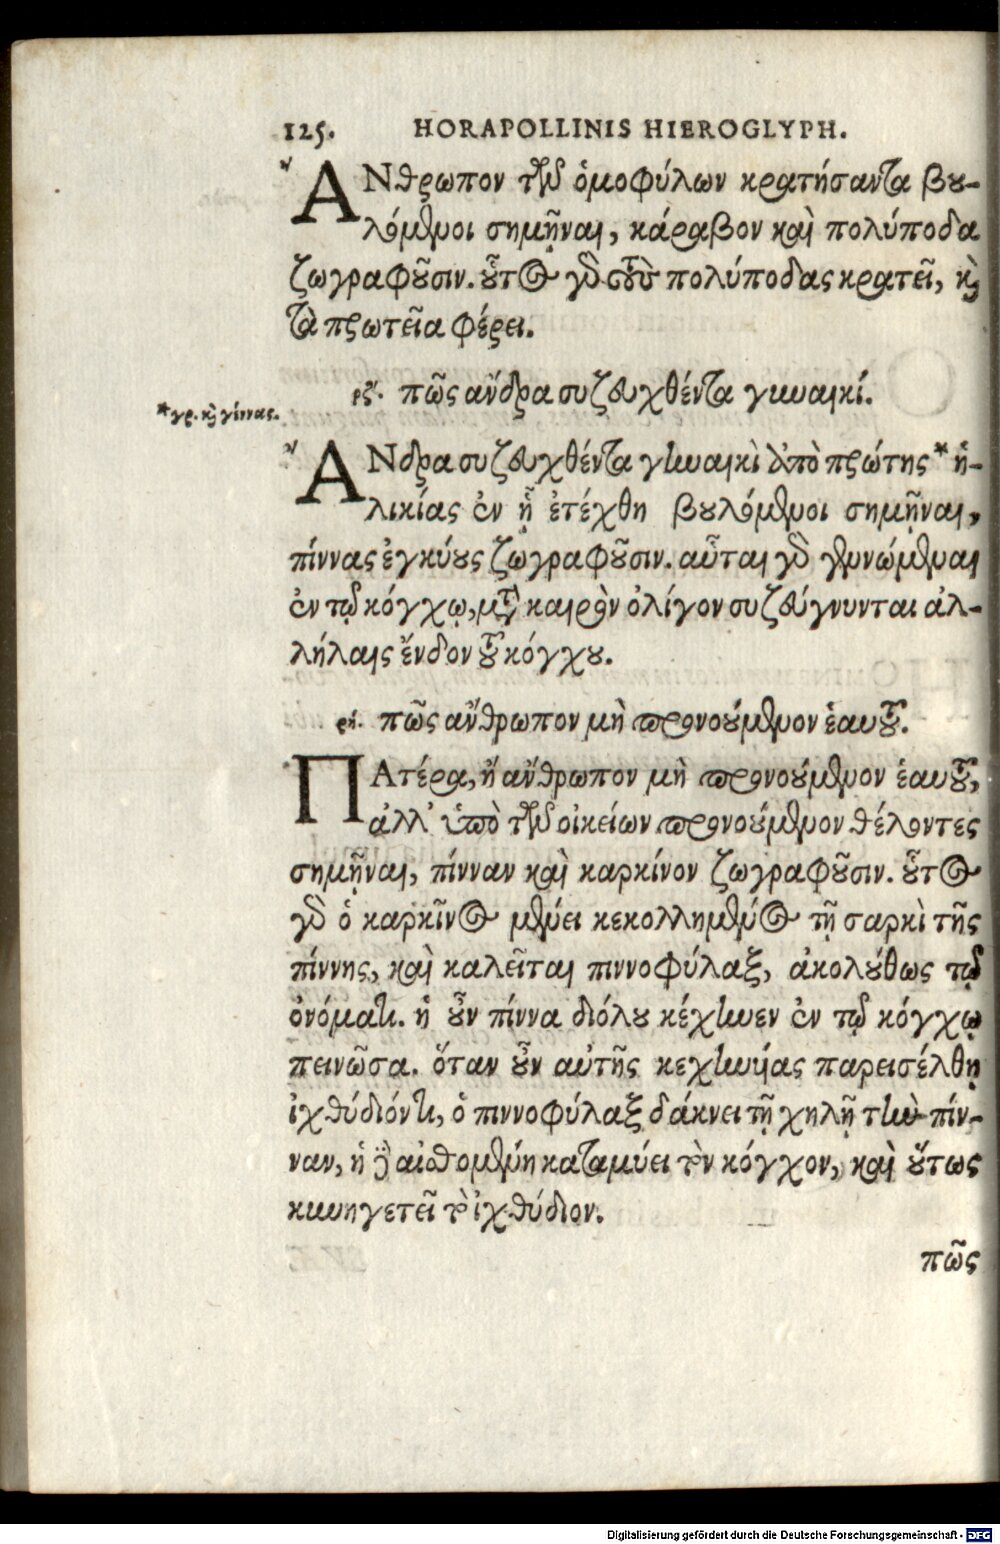 125. HORAPOLLINIS HIEROGLYPH.
ἌΝθρωπον τῶν ὁμοφύλων κρατήσαντα βου-
λόμενοι σημῆναι, κάραβον καὶ πολύποδα
ζωγραφοῦσιν. οὗτος γὰρ τοὺς πολύποδας κρατεῖ, καὶ
τὰ πρωτεῖα φέρει.
ρζ. πῶς ἄνδρα συζευχθέντα γυναικί.
*γρ. καὶ γίννας.
ἌΝδρα συζευχθέντα γυναικὶ ἀπὸ πρώτης* ἡ-
λικίας ἐν ᾗ ἐτέχθη βουλόμενοι σημῆναι,
πίννας ἐγκύους ζωγραφοῦσιν. αὗται γὰρ γεννώμεναι
ἐν τῷ κόγχῳ, μετὰ καιρὸν ὀλίγον συζεύγνυνται ἀλ-
λήλαις ἔνδον τοῦ κόγχου.
ρη. πῶς ἄνθρωπον μὴ προνούμενον ἑαυτοῦ.
ΠΑτέρα, ἢ ἄνθρωπον μὴ προνούμενον ἑαυτοῦ,
ἀλλ' ὑπὸ τῶν οἰκείων προνούμενον θέλοντες
σημῆναι, πίνναν καὶ καρκίνον ζωγραφοῦσιν. οὗτος
γὰρ ὁ καρκῖνος μένει κεκολλημένος τῇ σαρκὶ τῆς
πίννης, καὶ καλεῖται πιννοφύλαξ, ἀκολούθως τῷ
ὀνόματι. ἡ οὖν πίννα διόλου κέχηνεν ἐν τῷ κόγχῳ
πεινῶσα. ὅταν οὖν αὐτῆς κεχηνύας παρεισέλθῃ
ἰχθύδιόν τι, ὁ πιννοφύλαξ δάκνει τῇ χηλῇ τὴν πίν-
ναν, ἡ δὲ αἰσθομένη καταμύει τὸν κόγχον, καὶ οὕτως
κυνηγετεῖ τὸ ἰχθύδιον.
πῶς
Digitalisierung gefördert durch die Deutsche Forschungsgemeinschaft - DFG